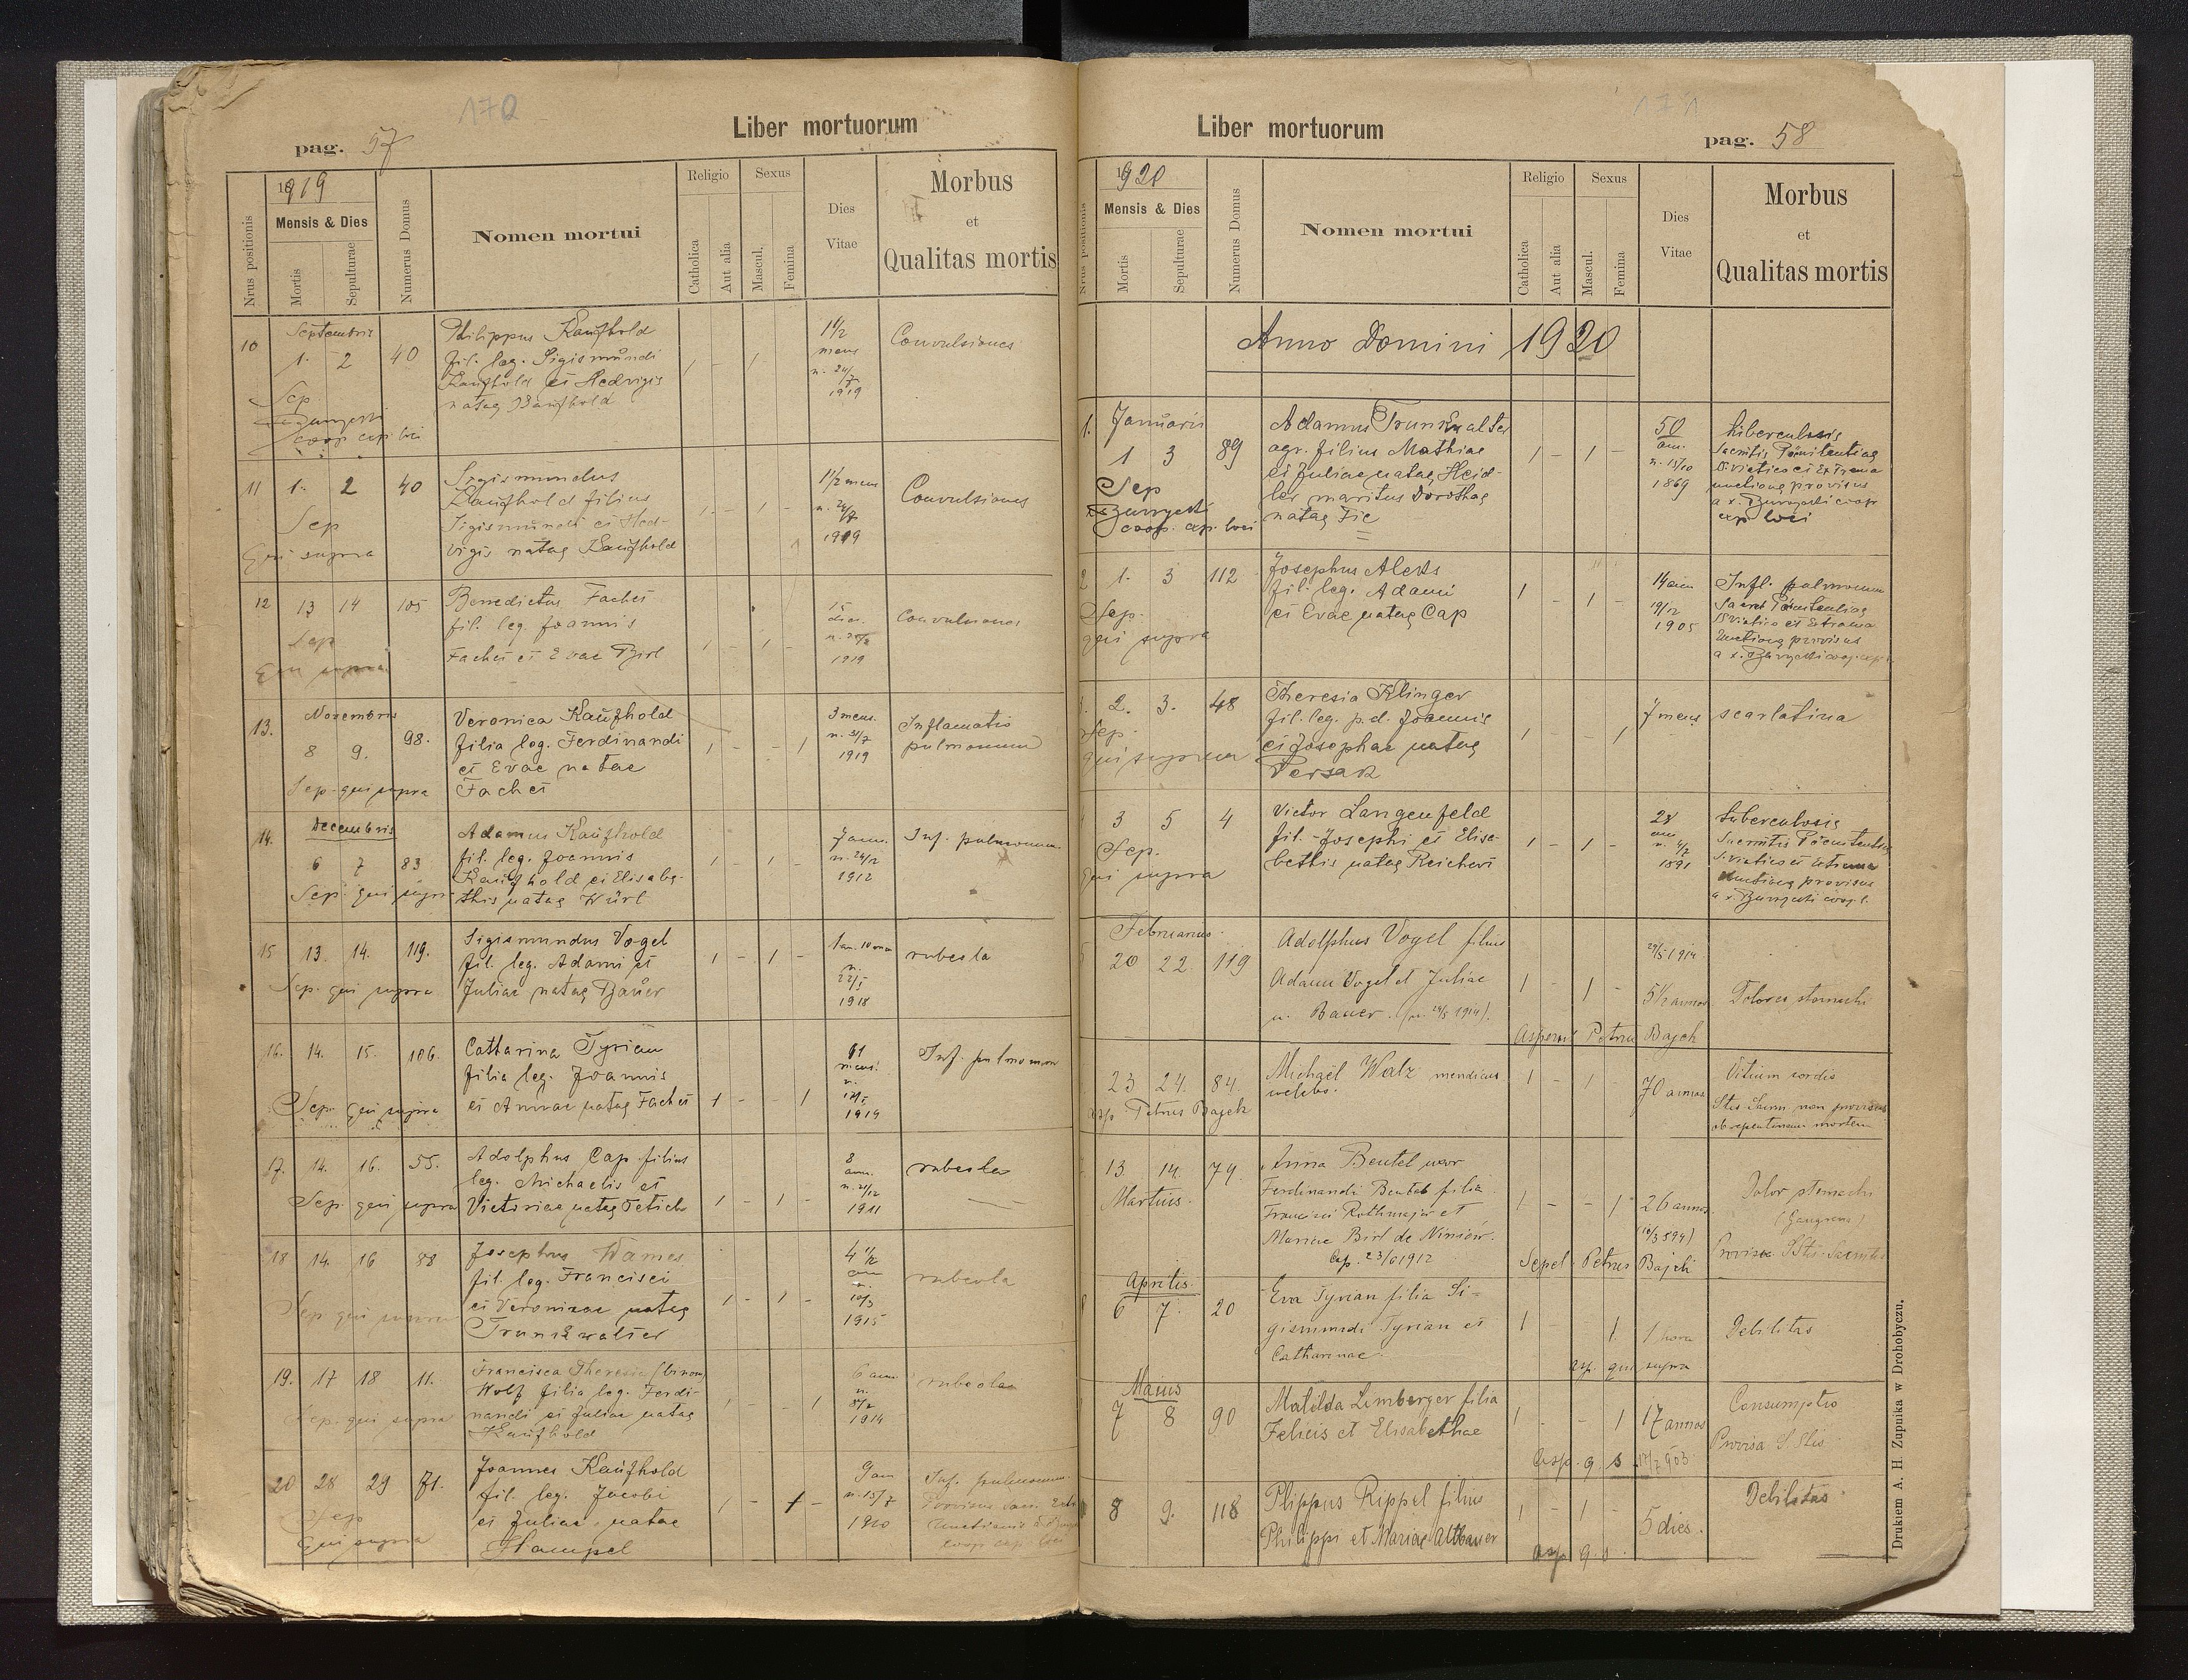 170
pag. 57
Liber mortuorum
1919
Nrus positionis
Mensis & Dies
Mortis
Sepulturae
Numerus Domus
Nomen mortui
Religio
Catholica
Aut alia
Sexus
Mascul.
Femina
Dies
Vitae
Morbus
et
Qualitas mortis
Septembris
10 1. 2 40
Philippus Kaufhold
fil. leg. Sigismundi
Kaufhold et Hedvigis
natae Kaufhold
1 - 1 -
1 1/2
mens
n. 24/7
1919
Convulsiones
Sep.
coop. exp. loci
11 1. 2 40
Sigismundus
Kaufhold filius
Sigismundi et Hed-
vigis natae Kaufhold
1 - 1 -
1 1/2 mens
n. 24/7
1919
Convulsiones
Sep
Qui supra
12 13 14 105
Benedictus Fachet
fil. leg. Joannis
Fachet et Evae Birl
1 - 1 -
15
dies.
1919
Convulsiones
Sep
Qui supra
Novembris
13. 8 9. 98.
Veronica Kaufhold
filia leg. Ferdinandi
et Evae natae
Fachet
1 - - 1
3 mens.
n. 31/7
1919
Inflamatio
pulmonum
Sep. qui supra
Decembris
14. 6 7 83
Adamus Kaufhold
fil. leg. Joannis
Kaufhold et Elisabe-
this natae Würl
1 - 1 -
7 ann.
n. 24/12
1912
Inf. pulmonum
Sep. qui supra
15 13. 14. 119.
Sigismundus Vogel
fil. leg. Adami et
Juliae natae Bauer
1 - 1 -
1 an. 10 men
n.
22/1
1918
rubeola
Sep. qui supra
16. 14. 15. 106.
Catharina Tyrian
filia leg. Joannis
et Annae natae Fachet
1 - - 1
mens.
n.
1919
Inf. pulmonum
Sep. qui supra
17. 14. 16. 55.
Adolphus Cap filius
leg. Michaelis et
Victoriae natae Fetich
1 - 1 -
8
ann.
n. 21/12
1911
rubeola
Sep. qui supra
18 14. 16 88
Josephus Wames
fil. leg. Francisci
et Veronicae natae
Trunkwalter
1 - 1 -
4 1/2
ann
n.
10/3
1915
rubeola
Sep. qui supra
19. 17 18 11.
Francisca Theresia (binom)
Wolf filia leg. Ferdi-
nandi et Juliae natae
Kaufhold
1 - - 1
6 ann
n.
8/2
1914
rubeola
Sep. qui supra
20 28 29 71.
Joannes Kaufhold
fil. leg. Jacobi
et Juliae natae
Hampel
1 - 1 -
9 an
n. 15/7
1910
Inf. pulmonum
Provisus sacr. Extr.
Unctionis
coop exp. loci
Sep
Qui supra
171
Liber mortuorum
pag. 58
1920
Nrus positionis
Mensis & Dies
Mortis
Sepulturae
Numerus Domus
Nomen mortui
Religio
Catholica
Aut alia
Sexus
Mascul.
Femina
Dies
Vitae
Morbus
et
Qualitas mortis
Anno Domini 1920
Januarii
1. 1 3 89
Adamus Trunkwalter
agr. filius Mathiae
et Juliae natae Heid-
ler maritus Dorotheae
natae Fic
1 - 1 -
50
ann.
n. 15/10
1869
tuberculosis
Sacmtis Pönitentiae
S. viatico et Extrema
unctione provisus
exp. loci
Sep
coop. exp. loci
2 1. 3 112
Josephus Aleks
fil. leg. Adami
et Evae natae Cap
1 - 1 -
14 ann
19/12
1905
Infl. pulmonum
Sacret Pönitentiae
S. viatico et Extrema
Unctione provisus
Sep.
qui supra
2. 3. 48
Theresia Klinger
fil. leg. p.d. Joannis
et Josephae natae
Persak
1 - 1
7 mens
scarlatina
Sep.
qui supra
3 5 4
Victor Langenfeld
fil. Josephi et Elisa-
bethis natae Reichert
1 - 1 -
28
ann
n. 4/7
1891
tuberculosis
Sacmtis Pönitentiae
S. viatico et extrema
Unctione provisus
Sep.
Qui supra
Februarius.
5 20 22. 119
Adolphus Vogel filius
Adami Vogel et Juliae
n. Bauer. (n. 29/5 1914).
1 - 1 -
29/5 1914
5 1/2 annos.
Dolores stomachi
Aspersit Petrus Bajch
23 24. 84.
Michaël Walz mendicus
1 - 1
70 annos
Vitium cordis
Stis Sacm. non provisus
ob repentinam mortem
asp. Petrus Bajch
13 14. 74.
Martius.
Anna Beutel uxor
Ferdinandi Beutel filia
Francisci Rothmajer et
Mariae Birl de Niniów.
Cop. 23/6 1912
1 - - 1
26 annos
Dolor stomachi
(Gangrena)
Provisa SStis Sacmtis
Sepel. Petrus Bajch
Aprilis.
6 7. 20
Eva Tyrian filia Si-
gismundi Tyrian et
Catharinae.
1 - - 1
1 hora
Debilitas
asp. qui supra
Maius
7 8 90
Matilda Lemberger filia
Felicis et Elisabethae
1 - - 1
17 annos
17/7 903
Consumptio
Provisa S Stis
asp. q. s
8 9. 118
Plippus Rippel filius
Philippi et Mariae Altbauer
1 - 1 -
5 dies.
Debilitas
asp q. s
Drukiem A. H. Zupnika w Drohobyczu.